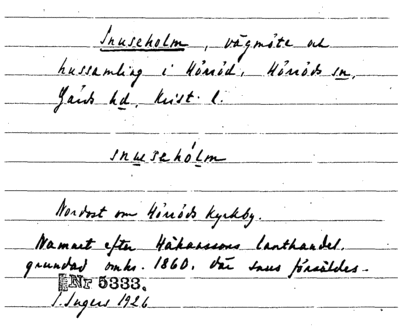 Snuseholm, vägmöte och
hussamling i Hörröd, Hörröds sn,
Gärds hd, Krist. l.
snusehólm
Nordost om Hörröds kyrkby.
Namnet efter Håkanssons lanthandel,
grundad omkr. 1860, där snus försåldes.
Nr 5333.
I. Ingers 1926